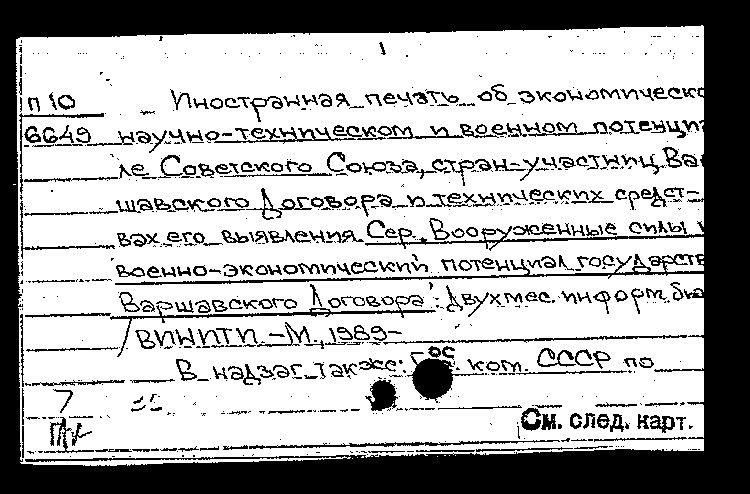 П10 Иностранная печать об экономическо
6649 научно-техническом и военном потенциа
ле Советского Союза, стран-участниц Вар
шавского Договора и технических средст-
вах его выявления. Сер. Вооруженные силы и
военно-экономический потенциал государств
Варшавского Договора: Двухмес. информ. бю
/ВИНИТИ.-М., 1989-
В надзаг. также: Гос. ком. СССР по
7
См. след. карт.